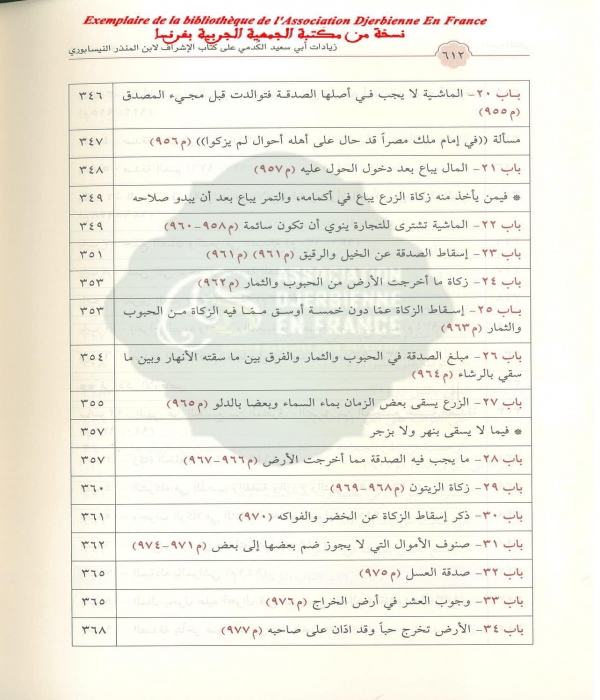 Exemplaire de la bibliothèque de l'Association Djerbienne En France
نسخة من مكتبة الجمعية الجربية بفرنسا
زيادات أبي سعيد الكدمي على كتاب الإشراف لابن المنذر النيسابوري
٦١٢
بـاب ٢٠- الماشية لا يجب في أصلها الصدقة فتوالدت قبل مجيء المصدق ٣٤٦
(م٩٥٥)
مسألة ((في إمام ملك مصراً قد حال على أهله أحوال لم يزكوا)) (م٩٥٦) ٣٤٧
باب ٢١- المال يباع بعد دخول الحول عليه (م٩٥٧) ٣٤٨
* فيمن يأخذ منه زكاة الزرع يباع في أكمامه، والتمر يباع بعد أن يبدو صلاحه ٣٤٩
باب ٢٢- الماشية تشترى للتجارة ينوي أن تكون سائمة (م٩٥٨-٩٦٠) ٣٤٩
باب ٢٣- إسقاط الصدقة عن الخيل والرقيق (م٩٦١) (م٩٦١) ٣٥١
باب ٢٤- زكاة ما أخرجت الأرض من الحبوب والثمار (م٩٦٢) ٣٥٣
بـاب ٢٥- إسقاط الزكاة عمّا دون خمسة أوسق ممّا فيه الزكاة من الحبوب ٣٥٣
والثمار (م٩٦٣)
باب ٢٦- مبلغ الصدقة في الحبوب والثمار والفرق بين ما سقته الأنهار وبين ما ٣٥٤
سقي بالرشاء (م٩٦٤)
باب ٢٧- الزرع يسقى بعض الزمان بماء السماء وبعضا بالدلو (م٩٦٥) ٣٥٥
* فيما لا يسقى بنهر ولا بزجر ٣٥٧
باب ٢٨- ما يجب فيه الصدقة مما أخرجت الأرض (م٩٦٦-٩٦٧) ٣٥٧
باب ٢٩- زكاة الزيتون (م٩٦٨-٩٦٩) ٣٦٠
باب ٣٠- ذكر إسقاط الزكاة عن الخضر والفواكه (م٩٧٠) ٣٦١
باب ٣١- صنوف الأموال التي لا يجوز ضم بعضها إلى بعض (م٩٧١-٩٧٤) ٣٦٢
باب ٣٢- صدقة العسل (م٩٧٥) ٣٦٥
باب ٣٣- وجوب العشر في أرض الخراج (م٩٧٦) ٣٦٥
باب ٣٤- الأرض تخرج حباً وقد ادّان على صاحبه (م٩٧٧) ٣٦٨
ASSOCIATION
DJERBIENNE
EN FRANCE